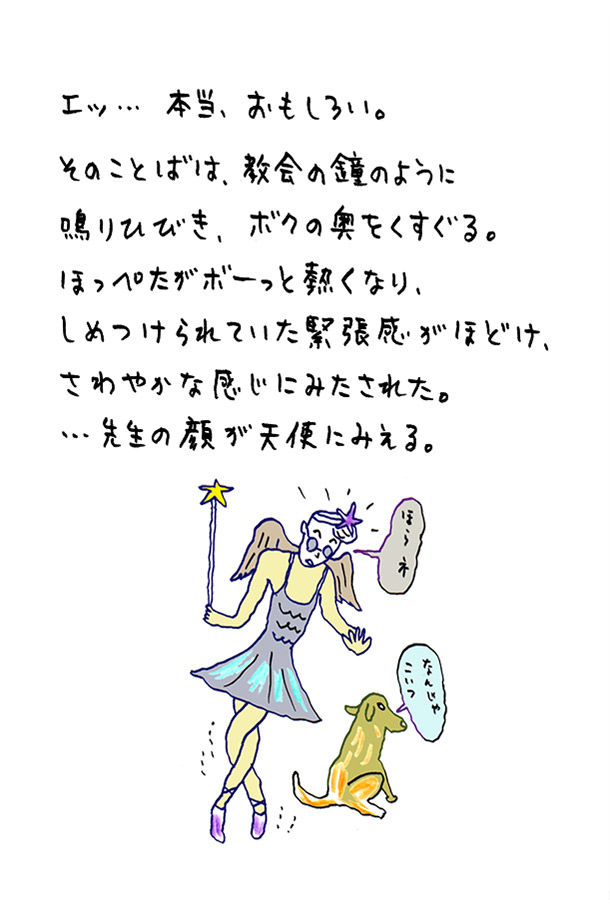 エッ… 本当、おもしろい。
そのことばは、教会の鐘のように
鳴りひびき、ボクの奥をくすぐる。
ほっぺたがボーっと熱くなり、
しめつけられていた緊張感がほどけ、
さわやかな感じにみたされた。
…先生の顔が天使にみえる。
ほらネ
なんじゃ
こいつ